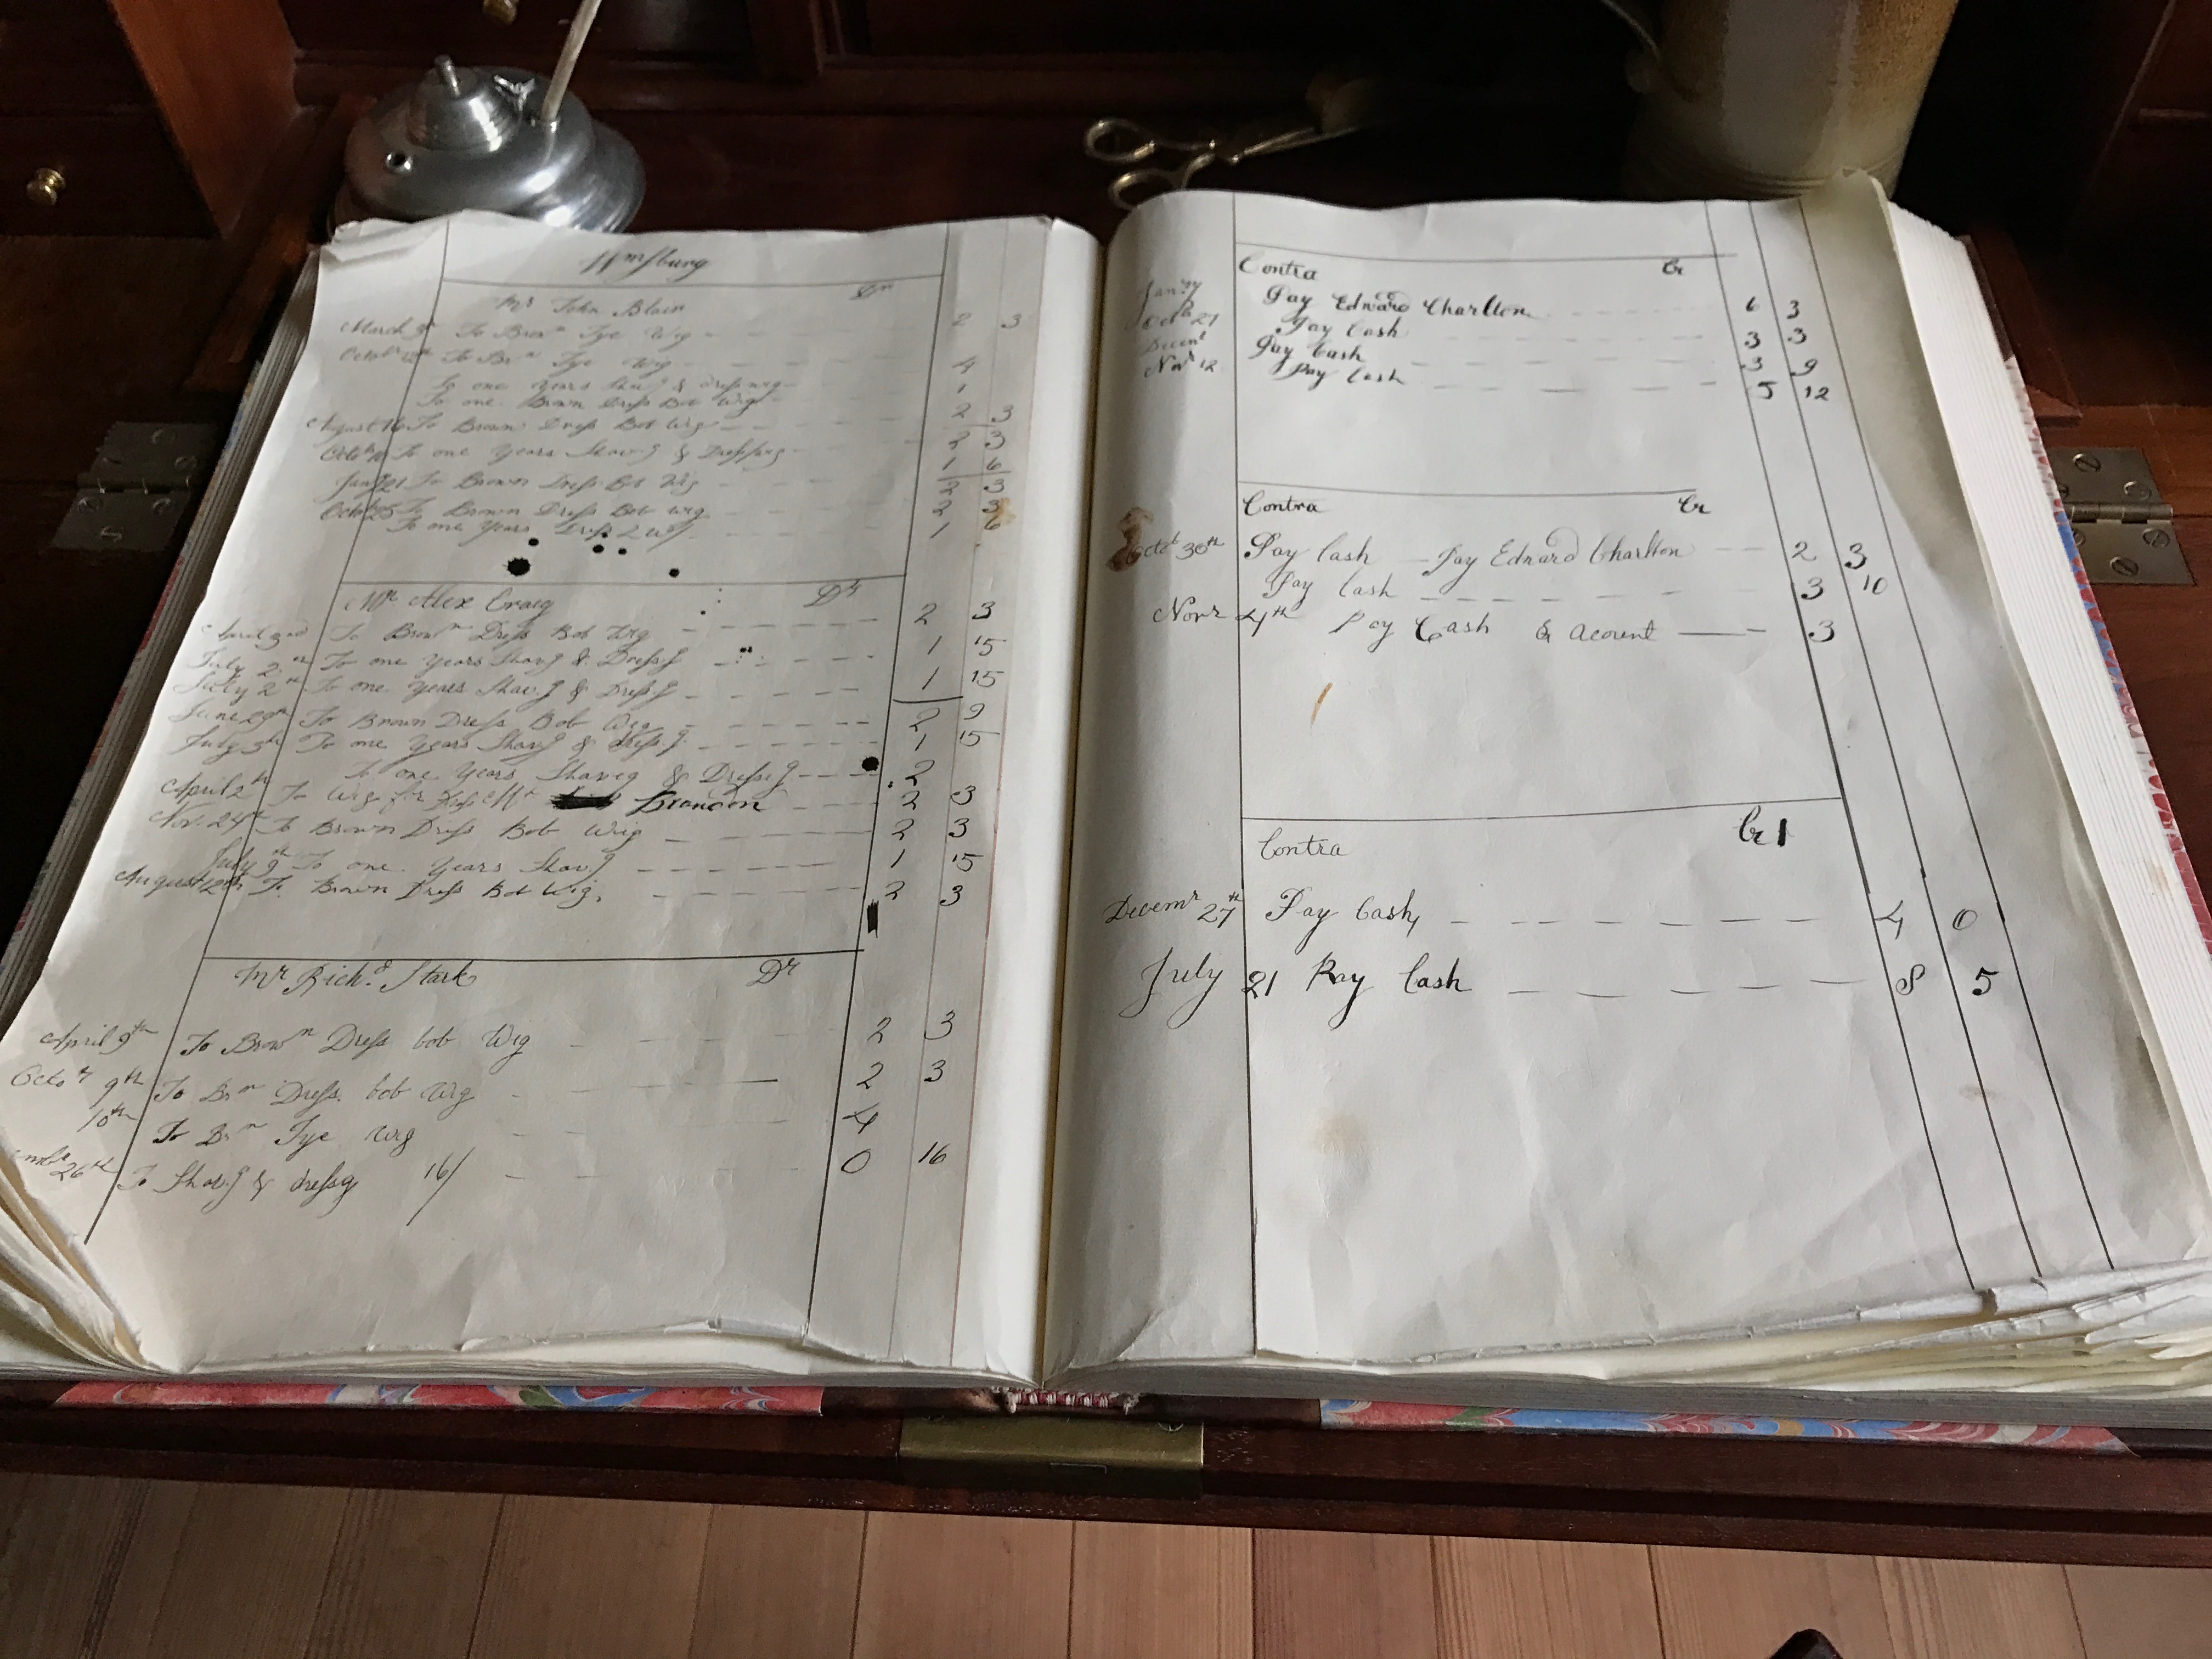 Wmsburg
Mr John Blair Dr
March 9th To Brown Tye Wig 2 3
Octobr 12th To Brn Tye Wig 4
To one Years Shavg & dressing 1
To one Brown Dress Bob Wig 2 3
August 16 To Brown Dress Bob Wig 2 3
Octbr 10 To one Years Shavg & Dressing 1 6
Jany 21 To Brown Dress Bob Wig 2 3
Octbr 25 To Brown Dress Bob Wig 2 3
To one Years Dress 2 W 1 6
Mr Alex Craig Dr
April 3rd To Brown Dress Bob Wig 2 3
July 2th To one Years Shavg & Dressg 1 15
July 2th To one Years Shavg & Dressg 1 15
June 29th To Brown Dress Bob Wig 2 9
July 3th To one Years Shavg & Dressg 1 15
To one Years Shaveg & Dressg 2
April 2th To Wig for Mr Brandon 2 3
Nov. 24th To Brown Dress Bob Wig 2 3
July 9th To one Years Shavg 1 15
August 12th To Brown Dress Bob Wig 2 3
Mr Richd Stark Dr
April 9th To Brown Dress bob Wig 2 3
Octor 9th To Brn Dress bob Wig 2 3
10th To Brn Tye Wig 4
26th To Shavg & dressg 16/ 0 16
Contra Cr
Jany Pay Edward Charlton 6 3
Octb 21 Pay Cash 3 3
Decem Pay Cash 3 9
Novr 12 Pay Cash 5 12
Contra Cr
Octb 30th Pay Cash Pay Edward Charlton 2 3
Pay Cash 3 10
Novr 4th Pay Cash & Acount 3
Contra Cr
Decemr 27th Pay Cash 4 0
July 21 Pay Cash 8 5